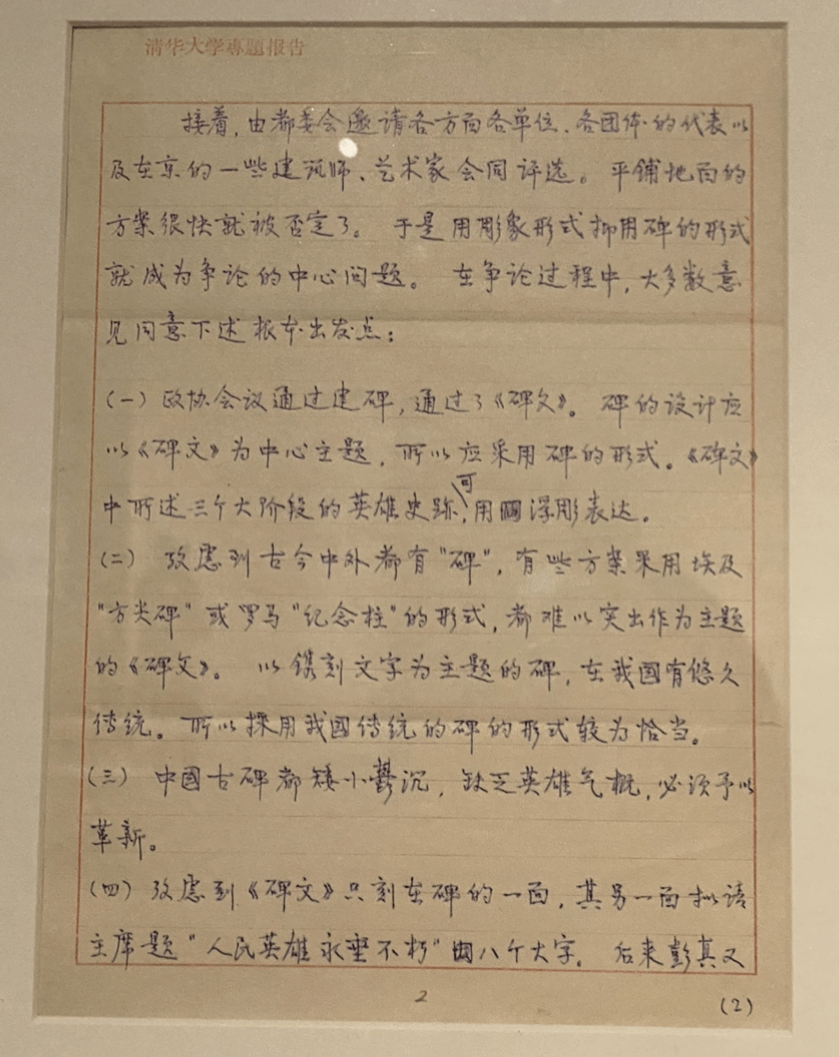 清华大学專題报告
接着，由都委会邀请各方面各单位、各团体的代表以
及在京的一些建筑师、艺术家会同评选。平铺地面的
方案很快就被否定了。于是用彫象形式抑用碑的形式
就成为争论的中心问题。在争论过程中，大多数意
见同意下述根本出发点：
(一) 政协会议通过建碑，通过了《碑文》。碑的设计应
以《碑文》为中心主题，所以应采用碑的形式。《碑文》
中所述三个大阶段的英雄史跡，可用浮彫表达。
(二) 攷虑到古今中外都有"碑"，有些方案采用埃及
"方尖碑"或罗马"纪念柱"的形式，都难以突出作为主题
的《碑文》。以鐫刻文字为主题的碑，在我國有悠久
传统。所以採用我國传统的碑的形式较为恰当。
(三) 中國古碑都矮小鬱沉，缺乏英雄气概，必须予以
革新。
(四) 攷虑到《碑文》只刻在碑的一面，其另一面拟请
主席题"人民英雄永垂不朽"八个大字。后来彭真又
2
(2)